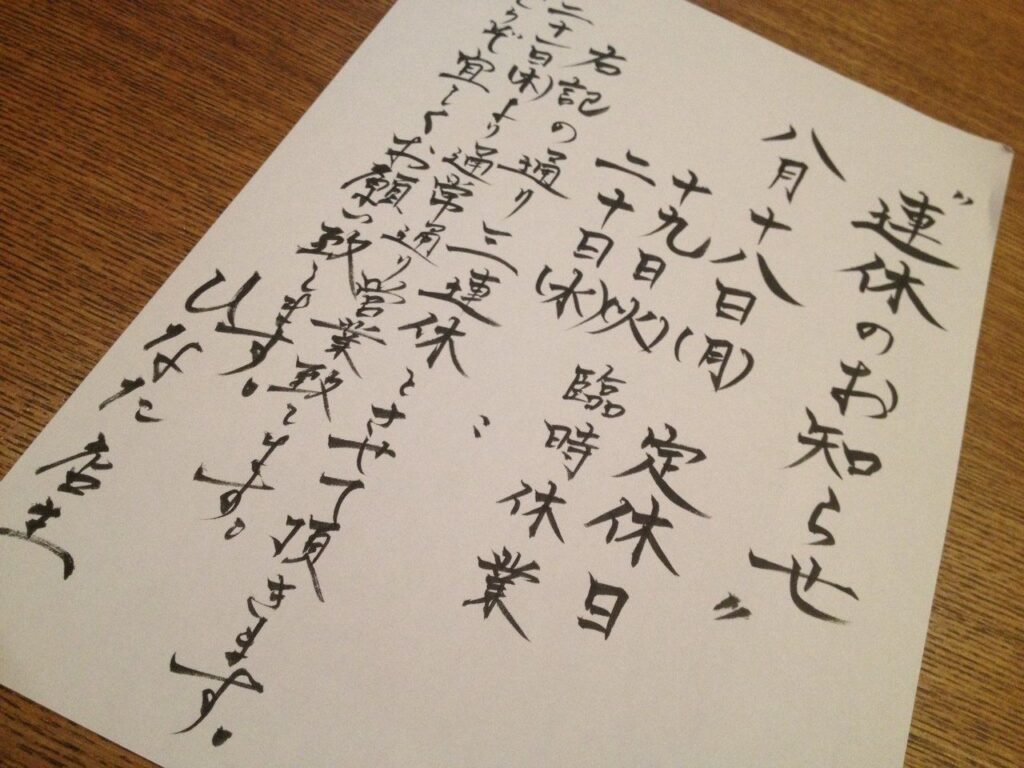 〝連休のお知らせ〟
八月十八日(月)
十九日(火) 定休日
二十日(水) 臨時休業
右記の通り三連休とさせて頂きます。
二十一日(木)より通常通り営業致します。
どうぞ宜しくお願い致します。
ひなた 店主